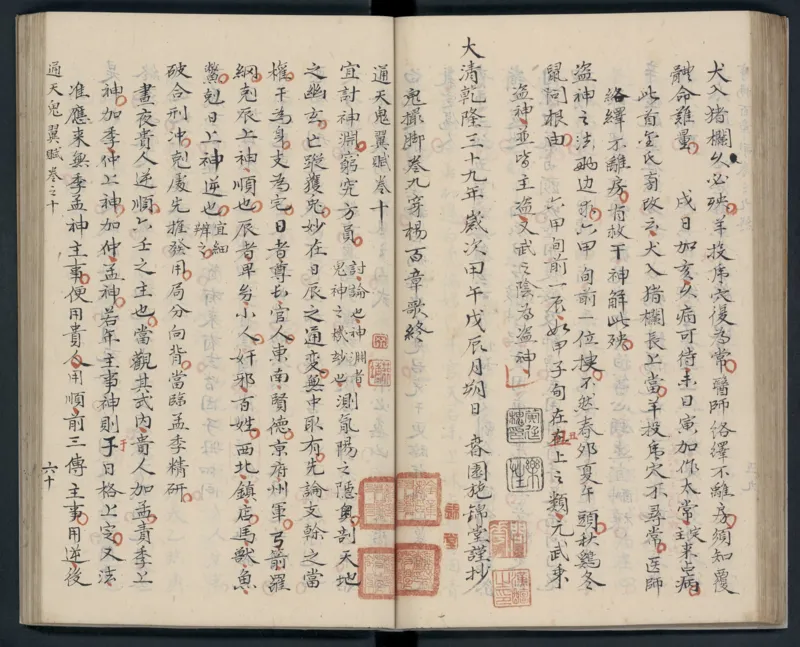 犬入猪欄久必殃羊投虎穴後為常醫師絡繹不離房須知覆
體命難量 戌日加亥久病可待未日寅加作太常主求占病
此首金氏畜改云犬入猪欄長上當羊投虎穴不尋常医師
絡繹不離房有救干神解此殃
盜神之法
六甲旬前二位揀不然春夘夏午頭秋鷄冬
鼠同根由 六甲旬前一辰如甲子旬在丑上之類元武来
盜神並皆主盜又武之陰為盜神
大清乾隆三十九年歲次甲午戊辰月朔日 香圃施錦堂謹抄
鬼撮脚卷九穿楊百章歌終
通天鬼翼賦卷十
宜討神淵窮究方員 討論也神淵者鬼神之機妙也 測氣陽之隱奥剖天地
之幽玄亡蹤獲兎妙在日辰之通變無中取有先論支榦之當
權干為身支為宅日者尊長官人東南賢德京府州軍弓箭羅
網剋辰上神順也辰者卑幼小人奸邪百姓西北鎮店馬獸魚
鱉剋日上神逆也 宜細辨之
破合刑冲剋處先推發用局分向背當臨孟季精研
晝夜貴人逆順六壬之主也當觀其式内貴人加孟責季上
神加季仲上神加仲孟神若年主事神則子日格上定又法
准應来與季孟神主事便用貴人用順前三傳主事用逆後
通天鬼翼賦卷之十
六十